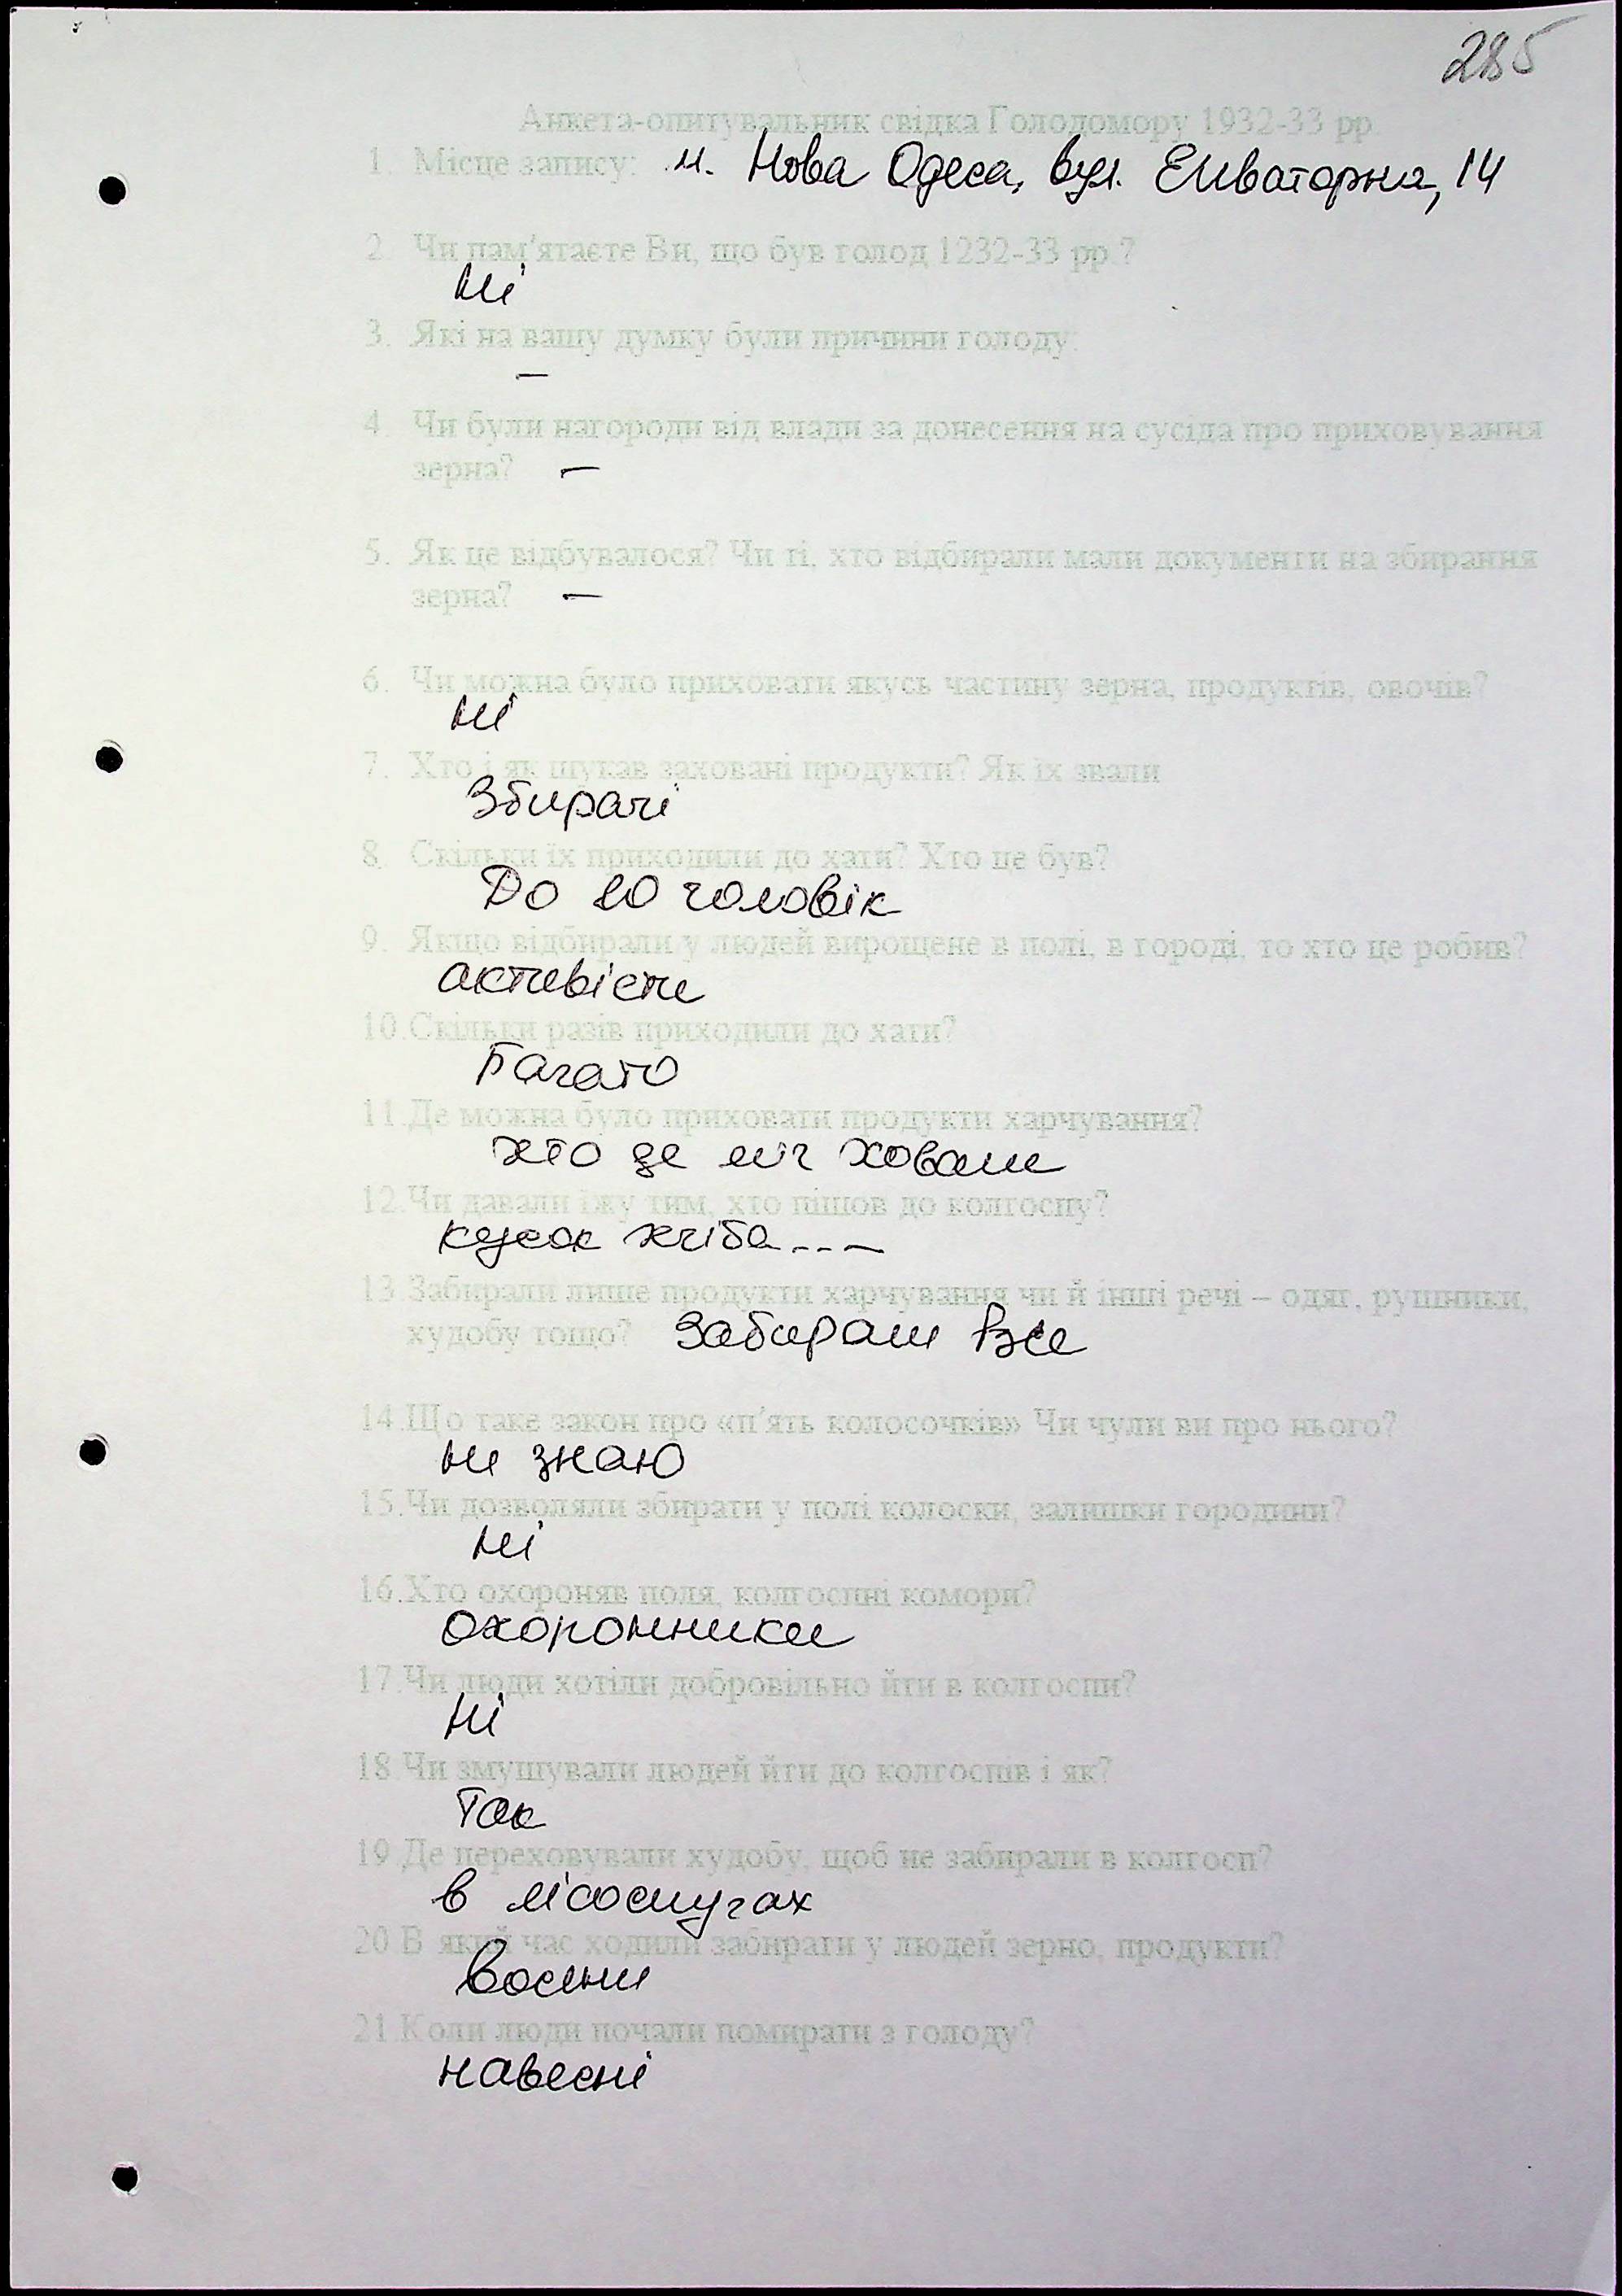 285
Анкета-опитувальник свідка Голодомору 1932-33 рр.
1. Місце запису: м. Нова Одеса, вул. Елеваторна, 14
2. Чи пам'ятаєте Ви, що був голод 1232-33 рр.?
Ні
3. Які на вашу думку були причини голоду:
–
4. Чи були нагороди від влади за донесення на сусіда про приховування
зерна? –
5. Як це відбувалося? Чи ті, хто відбирали мали документи на збирання
зерна? –
6. Чи можна було приховати якусь частину зерна, продуктів, овочів?
Ні
7. Хто і як шукав заховані продукти? Як їх звали
Збирачі
8. Скільки їх приходили до хати? Хто це був?
До 10 чоловік
9. Якщо відбирали у людей вирощене в полі, в городі, то хто це робив?
активісти
10.Скільки разів приходили до хати?
Багато
11.Де можна було приховати продукти харчування?
хто де міг ховали
12.Чи давали їжу тим, хто пішов до колгоспу?
кусок хліба....
13.Забирали лише продукти харчування чи й інші речі – одяг, рушники,
худобу тощо? Забирали все
14.Що таке закон про «п'ять колосочків» Чи чули ви про нього?
не знаю
15.Чи дозволяли збирати у полі колоски, залишки городини?
Ні
16.Хто охороняв поля, колгоспні комори?
охоронники
17.Чи люди хотіли добровільно йти в колгоспи?
Ні
18.Чи змушували людей йти до колгоспів і як?
Так
19.Де переховували худобу, щоб не забирали в колгосп?
в лісосмугах
20.В який час ходили забирати у людей зерно, продукти?
Восени
21.Коли люди почали помирати з голоду?
навесні